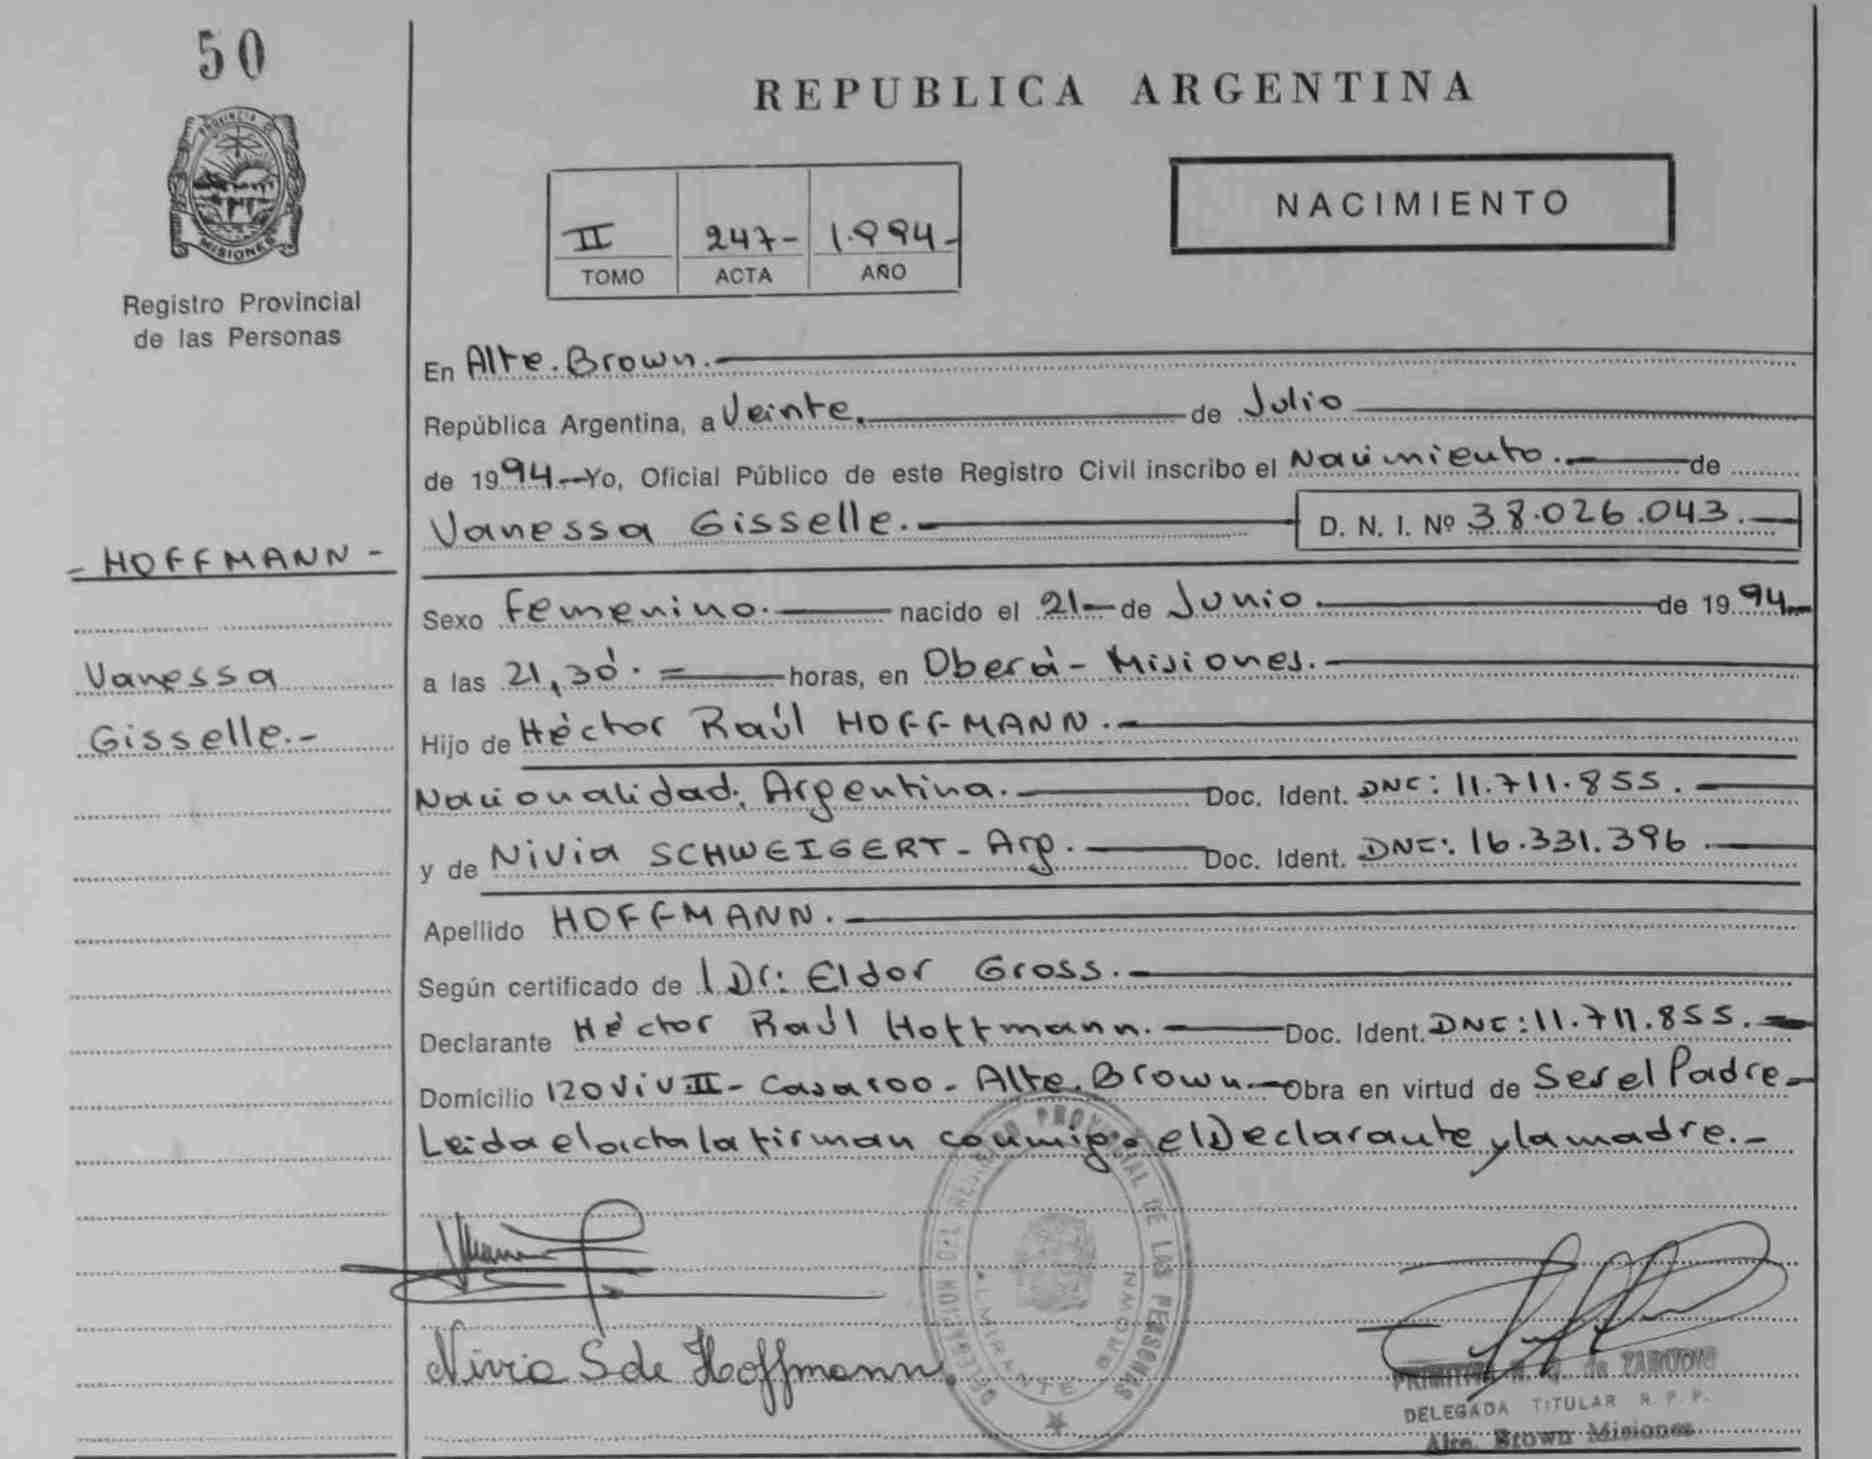 50
PROVINCIA DE
MISIONES
Registro Provincial
de las Personas
REPUBLICA ARGENTINA
NACIMIENTO
II 247- 1.994-
TOMO ACTA AÑO
En Alte. Brown.
República Argentina, a Veinte. de Julio
de 1994.- Yo, Oficial Público de este Registro Civil inscribo el Nacimiento. de
Vanessa Gisselle. D. N. I. Nº 38.026.043.
- HOFFMANN -
Vanessa
Gisselle.-
Sexo Femenino. nacido el 21- de Junio. de 1994
a las 21,30'. = horas, en Oberá - Misiones.
Hijo de Héctor Raúl HOFFMANN.
Nacionalidad, Argentina. Doc. Ident. DNI: 11.711.855.
y de Nivia SCHWEIGERT - Arg. Doc. Ident. DNI: 16.331.396
Apellido HOFFMANN.
Según certificado de l Dr: Eldor Gross.
Declarante Héctor Raúl Hoffmann. Doc. Ident. DNI: 11.711.855.
Domicilio 120 Viv II - Casa 100 - Alte. Brown. Obra en virtud de Ser el Padre-
Leida el acta la firman conmigo el Declarante y la madre.-
Nivia S de Hoffmann.
REGISTRO PROVINCIAL DE LAS PERSONAS
ALMIRANTE BROWN
de
DELEGADA TITULAR R. P. P.
Alte. Brown Misiones